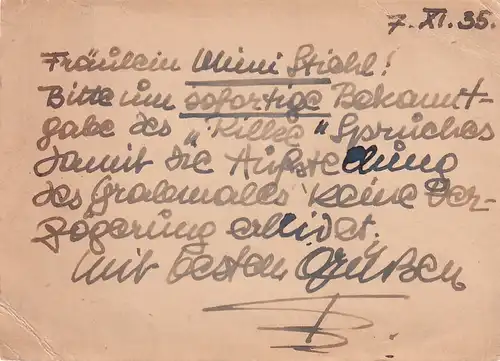 7. XI. 35.
Fräulein Mimi Stiehl!
Bitte um sofortige Bekannt-
gabe des „Rilke“ Spruches
damit die Aufstellung
des Grabmales keine Ver-
zögerung erleidet.
Mit besten Grüßen